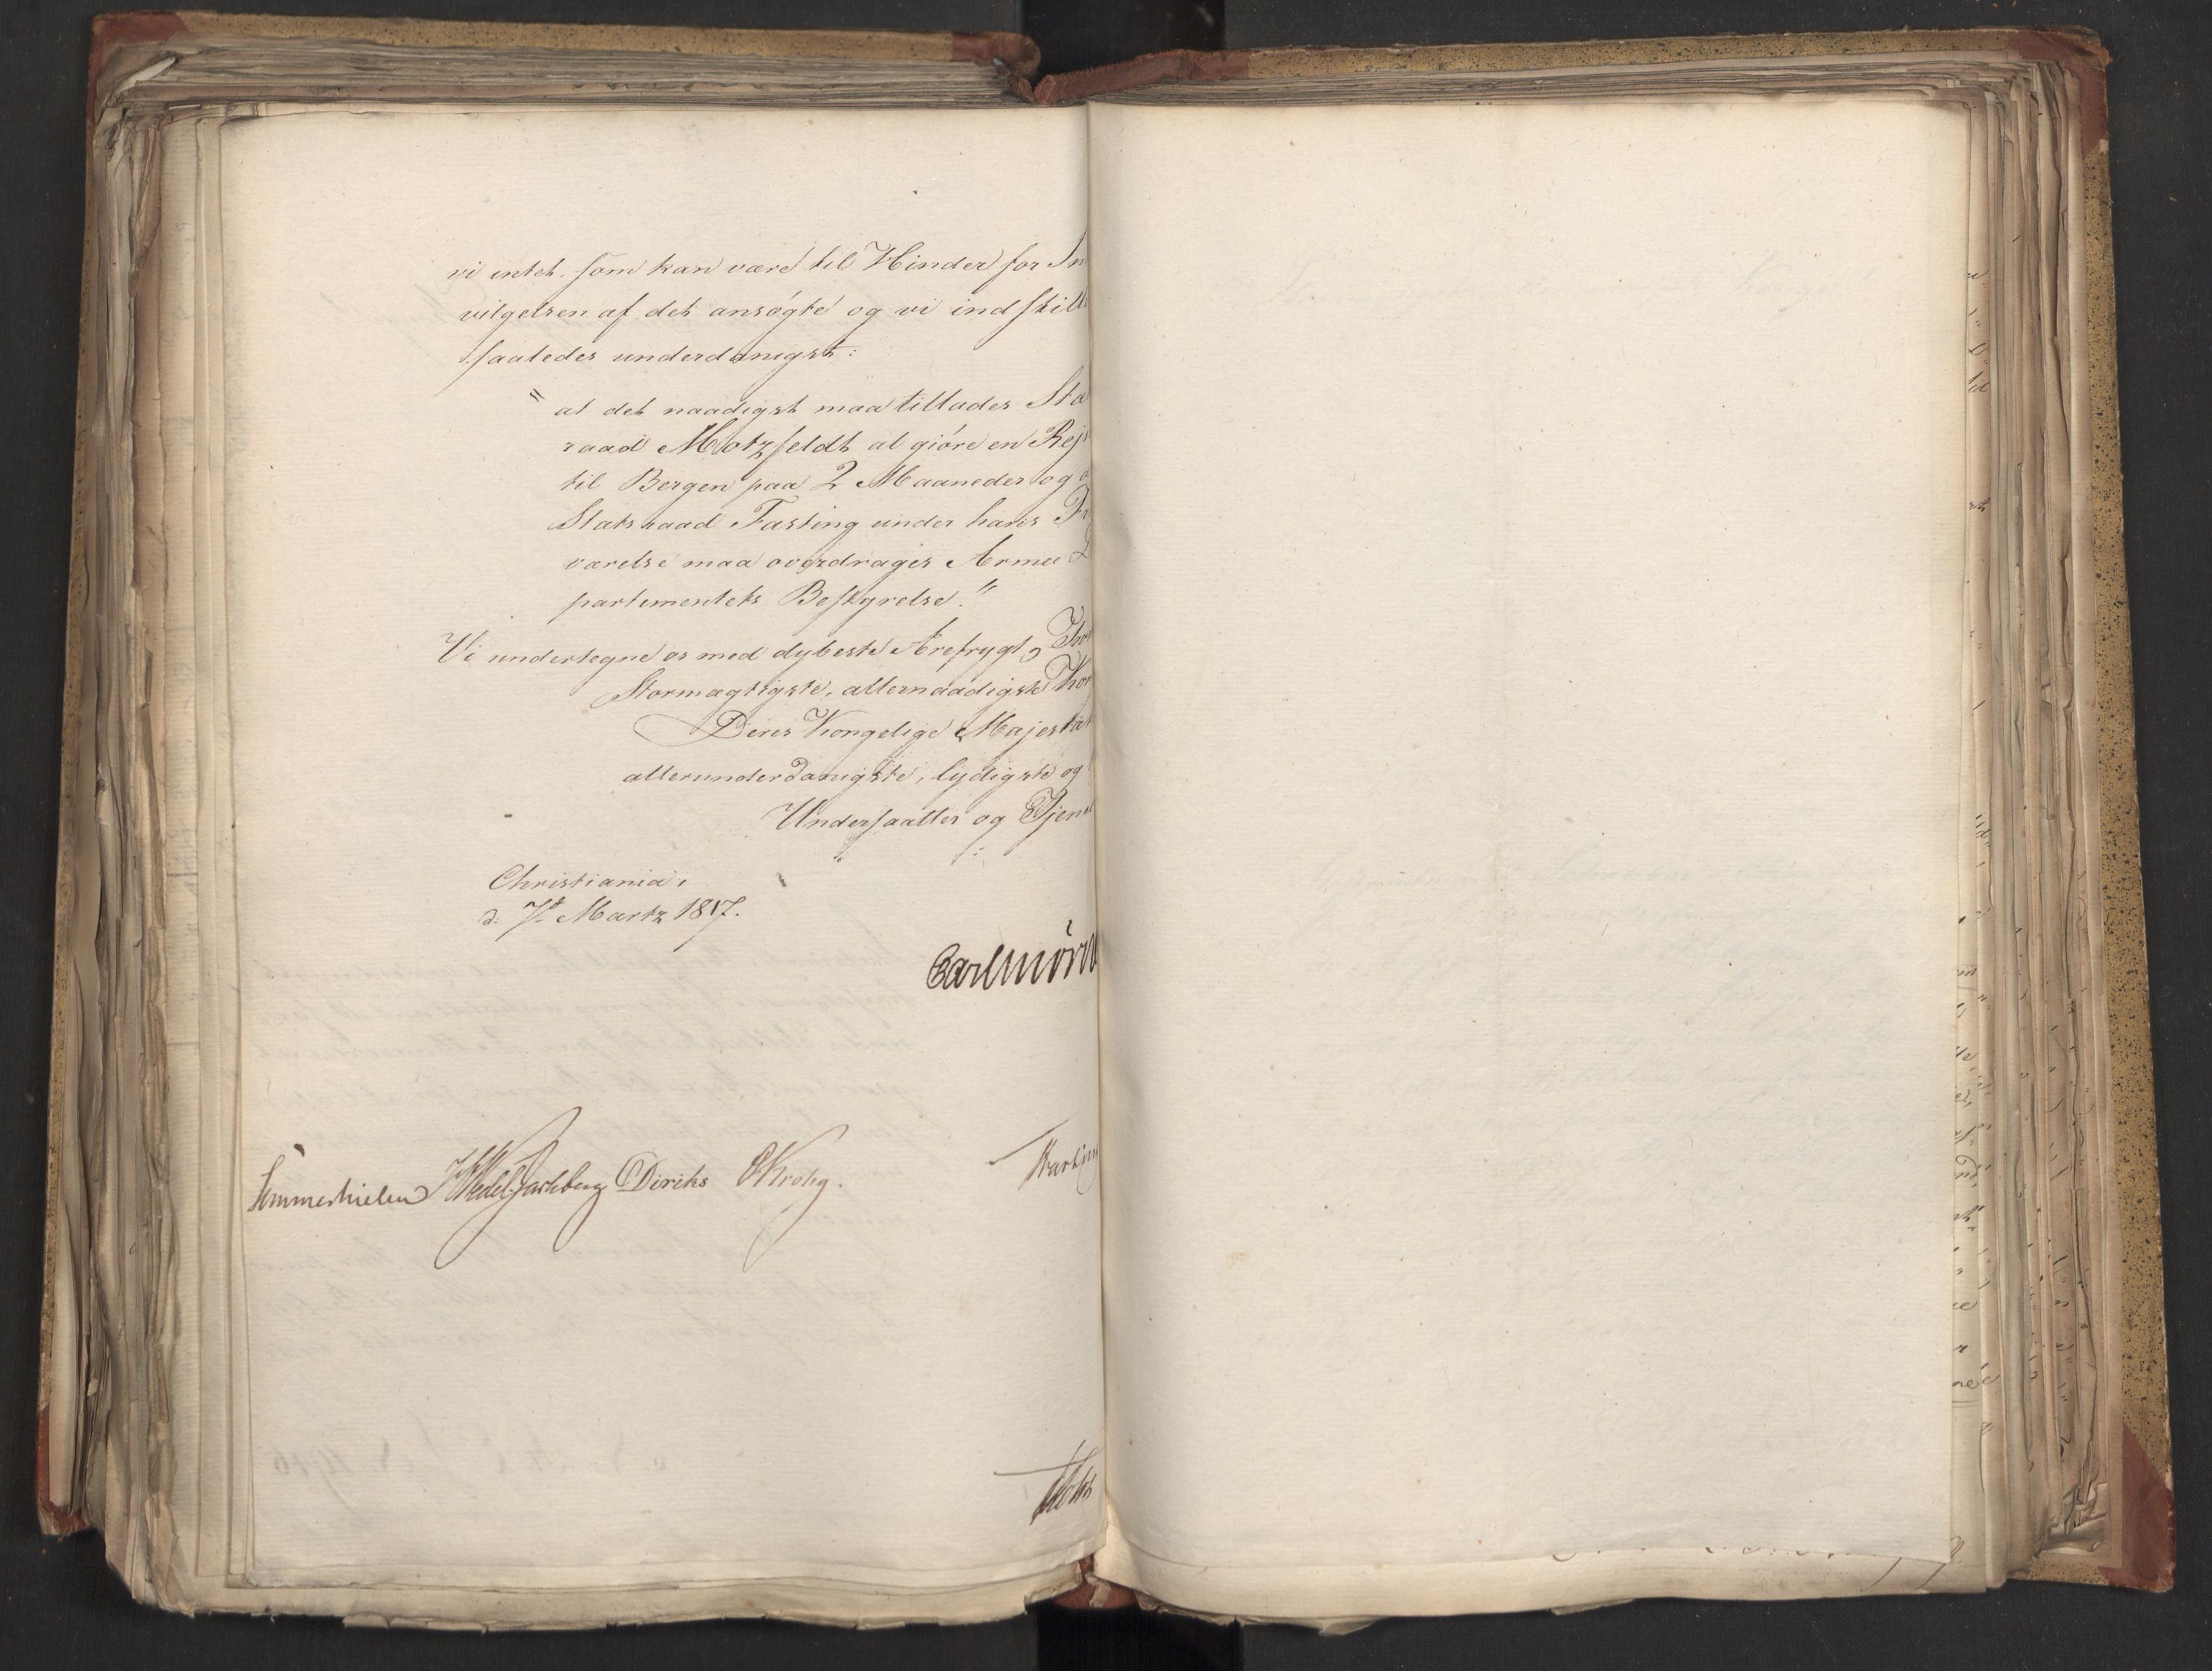 vi intet som kan være til Hinder for In
vilgelsen af det ansøgte og vi indstill
saaledes underdanigst:
" at det naadigst maa tillades Sta
raad Motzfeldt at giøre en Rej
til Bergen paa 2 Maaneder og a
Statsraad Fasting under hans Fr
værelse maa overdrages Armee D
partementets Bestyrelse."
Vi undertegne os med dybeste Ærefrygt,
Stormægtigste, allernaadigste Kon
Deres Kongelige Majestæt
allerunderdanigste, lydigste og
Undersaatter og Tjene
Christiania,
d. 7de Martz 1817.
Carl Mörn
Sommerhielm HWedel Jarlsberg Diriks CKrohg.